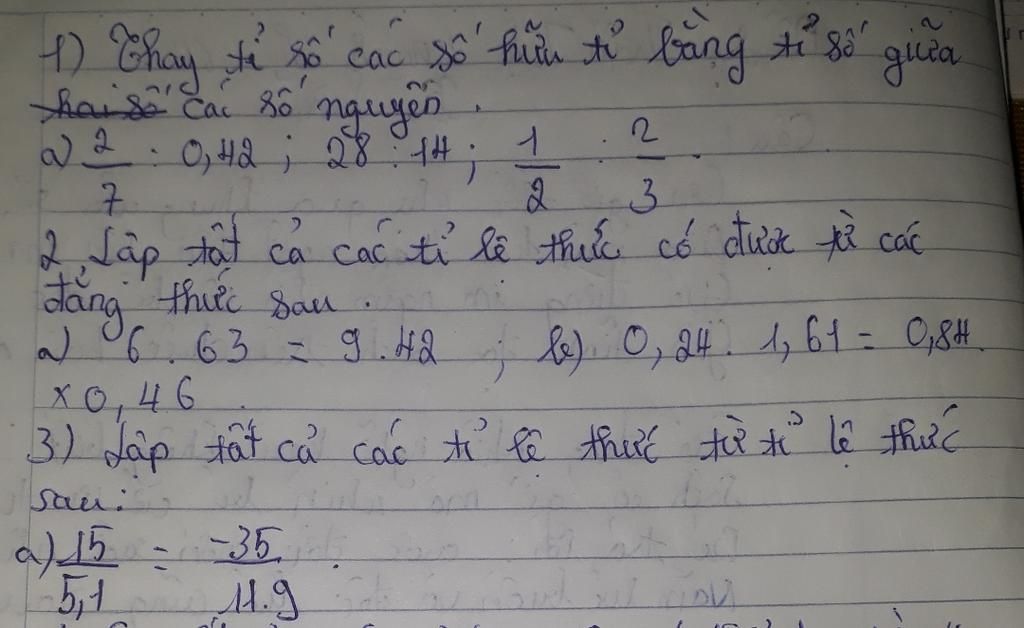 1) Thay tỉ số các số hữu tỉ bằng tỉ số giữa
hai số các số nguyên.
a) 2/7 : 0,42 ; 28 : 14 ; 1/2 : 2/3.
2 Lập tất cả các tỉ lệ thức có được từ các
đẳng thức sau.
a) 6 . 63 = 9 . 42 ; b) 0,24 . 1,61 = 0,84.
x 0,46.
3) Lập tất cả các tỉ lệ thức từ tỉ lệ thức
sau:
a) 15/5,1 = -35/11.9.